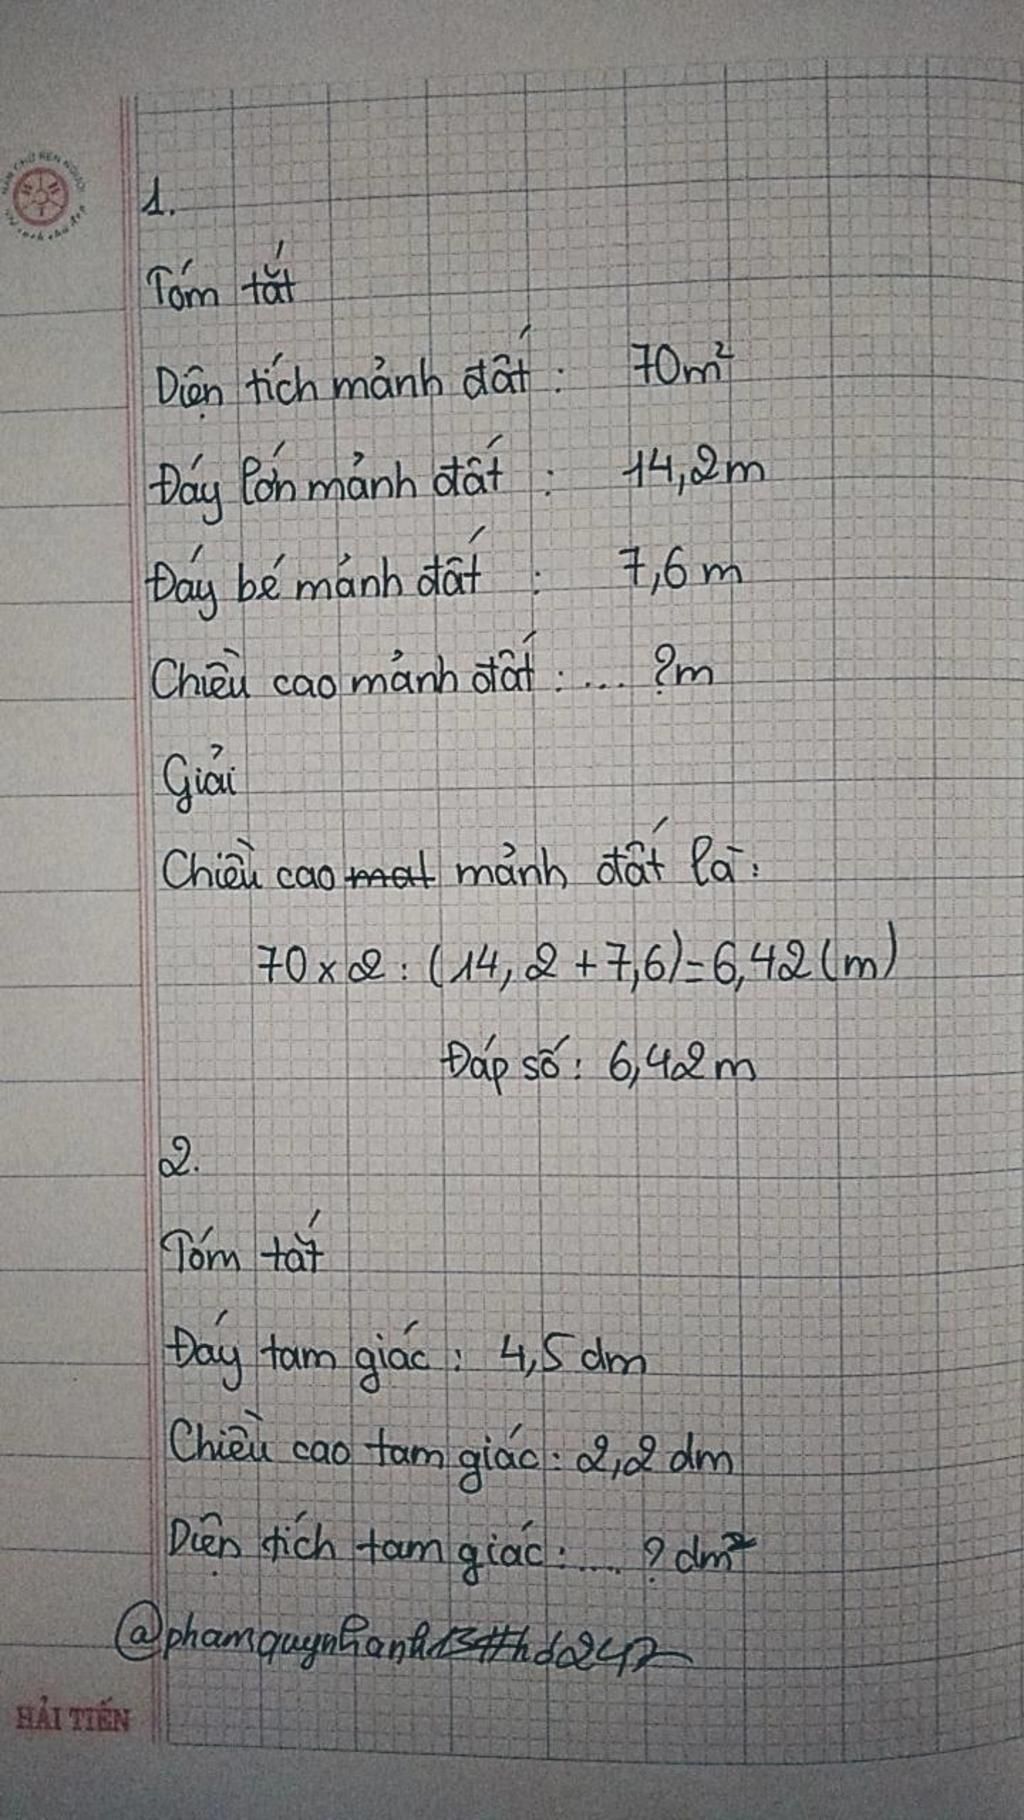 1.
Tóm tắt
Diện tích mảnh đất : 70m²
Đáy lớn mảnh đất : 14,2m
Đáy bé mảnh đất : 7,6m
Chiều cao mảnh đất : ... ?m
Giải
Chiều cao mat mảnh đất là :
70 x 2 : (14,2 + 7,6) = 6,42 (m)
Đáp số : 6,42m
2.
Tóm tắt
Đáy tam giác : 4,5 dm
Chiều cao tam giác : 2,2 dm
Diện tích tam giác : .... ? dm²
@phamquynhanh13#hd247
HẢI TIẾN